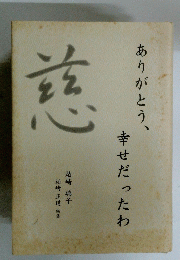 ありがとう、
幸せだったわ
慈